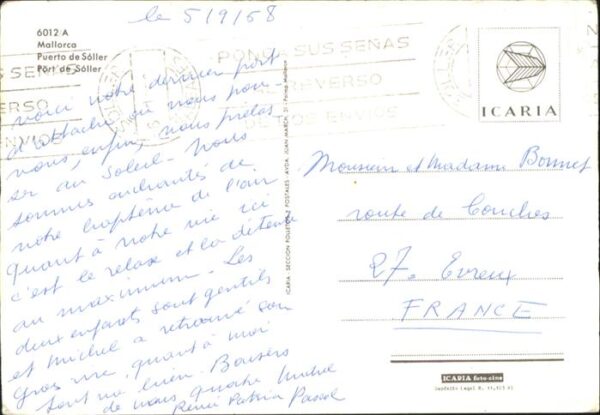 le 5/9/68
6012 A
Mallorca
Puerto de Sóller
Port de Sóller
PONGA SUS SEÑAS
REVERSO
ENVIOS
voici notre dernier port
d'attache où nous pou-
vons, enfin, nous prélas-
ser au Soleil. Nous
sommes enchantés de
notre baptême de l'air
quant à notre vie ici
c'est le relax et la détente
au maximum. Les
deux enfants sont gentils
et Michel a retrouvé son
Gros rire quant à moi
tout va bien. Baisers
de nous quatre Michel
Renée Patricia Pascal
ICARIA - SECCION FOLLETOS Y POSTALES AVDA. JUAN MARCH, Palma Mallorca
ICARIA
Monsieur et Madame Bonnet
route de Conches
27. Evreux
FRANCE
ICARIA foto-cine
Depósito Legal B.